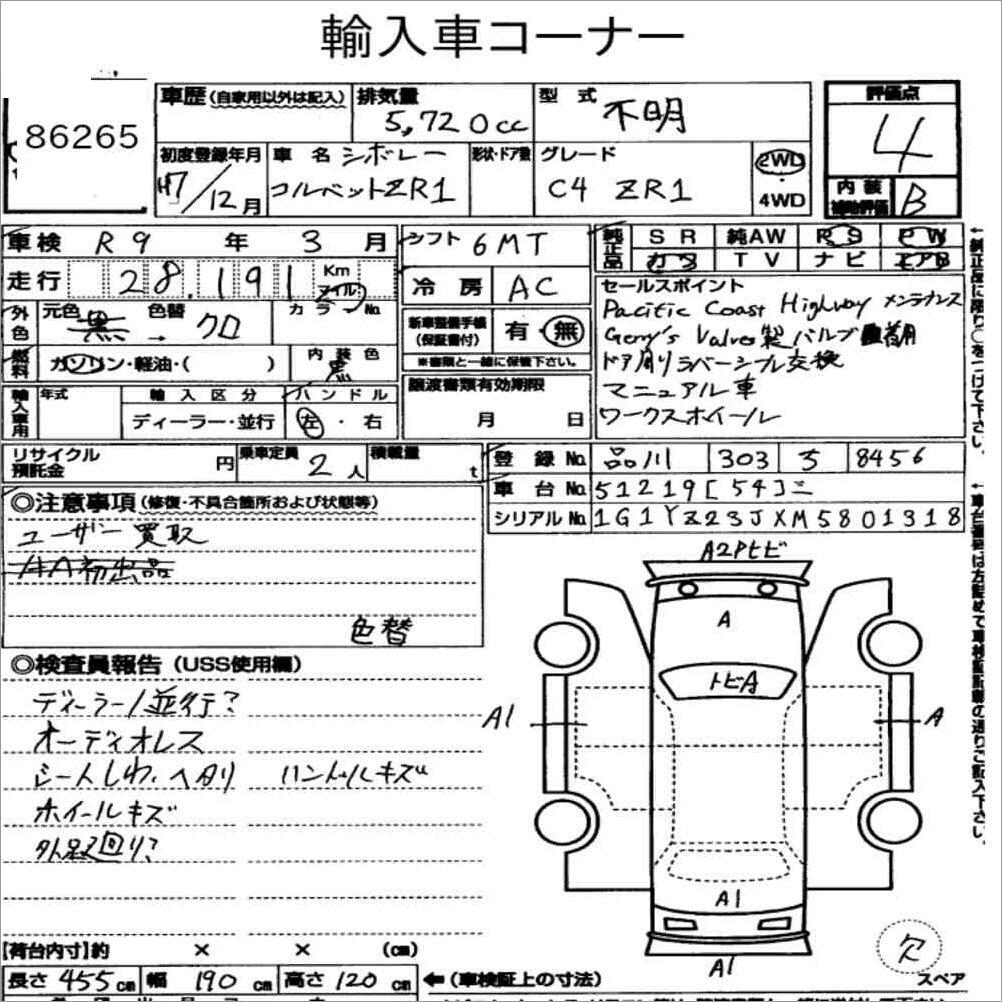 輸入車コーナー
86265
車歴 (自家用以外は記入) 排気量 5,720cc 型式 不明 評価点 4
初度登録年月 H7/12月 車名 シボレー コルベットZR1 形状・ドア数 グレード C4 ZR1 2WD・4WD 内装補助評価 B
車検 R9年 3月 シフト 6MT 純正品 SR 純AW PS PW
カワ TV ナビ エアB
走行 28,191 Km マイル 冷房 AC
外色 元色 黒 → 色替 クロ カラーNo
新車整備手帳(保証書付) 有・無
※書類と一緒に保管下さい。
燃料 ガソリン・軽油・( ) 内装色 黒
輸入車用 年式 輸入区分 ディーラー・並行 ハンドル 左・右
譲渡書類有効期限 月 日
セールスポイント
Pacific Coast Highway メンテナンス
Gerry's Valves製バルブ 着用
ドア周りラバーシーブル交換
マニュアル車
ワークスホイール
←純正品に限り○をつけて下さい。
リサイクル預託金 円 乗車定員 2人 積載量 t
登録No. 品川 303 ろ 8456
車台No. 51219[54]ニ
シリアルNo. 1G1YZ23JXM5801318
←車台番号は方詰めで車検証記載の通りご記入下さい。
◎注意事項 (修復・不具合箇所および状態等)
ユーザー買取
AA初出品
色替
◎検査員報告 (USS使用欄)
ディーラー/並行?
オーディオレス
シートしわ、ヘタリ ハンドルキズ
ホイールキズ
外品廻り?
A2Pヒビ
A
トビA
A1
A
A1
A1
欠
スペア
【荷台内寸】約 × × (cm)
長さ 455cm 幅 190cm 高さ 120cm ←(車検証上の寸法)